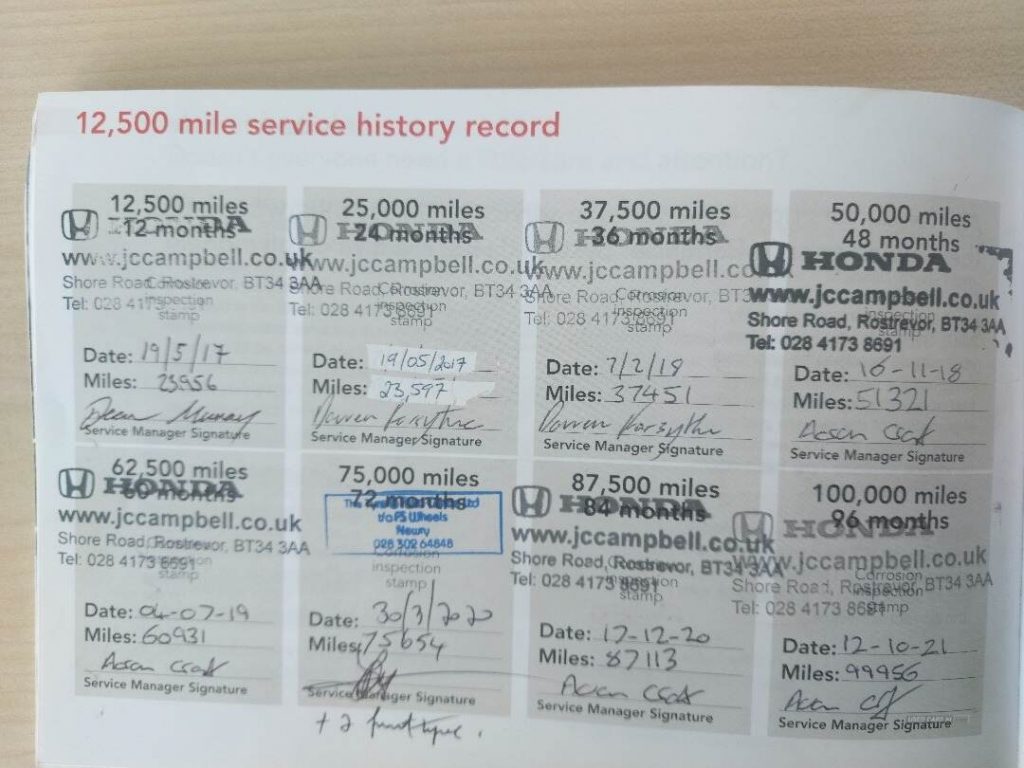 12,500 mile service history record
12,500 miles
12 months
HONDA
www.jccampbell.co.uk
Shore Road, Rostrevor, BT34 3AA
Corrosion
inspection
stamp
Tel: 028 41
Date: 19/5/17
Miles: 23956
Service Manager Signature
25,000 miles
24 months
HONDA
www.jccampbell.co.uk
Shore Road, Rostrevor, BT34 3AA
Corrosion
inspection
stamp
Tel: 028 4173 8691
Date: 19/05/2017
Miles: 23,597
Darren Forsythe
Service Manager Signature
37,500 miles
36 months
HONDA
www.jccampbell.co
Shore Road, Rostrevor, BT3
Corrosion
inspection
stamp
Tel: 028 4173 8691
Date: 7/2/18
Miles: 37451
Darren Forsythe
Service Manager Signature
50,000 miles
48 months
HONDA
www.jccampbell.co.uk
Shore Road, Rostrevor, BT34 3AA
inspection
stamp
Tel: 028 4173 8691
Date: 16-11-18
Miles: 51321
Service Manager Signature
62,500 miles
60 months
HONDA
www.jccampbell.co.uk
Shore Road, Rostrevor, BT34 3AA
Corrosion
inspection
stamp
Tel: 028 4173 8691
Date: 04-07-19
Miles: 60931
Service Manager Signature
75,000 miles
72 months
Ltd
t/a F5 Wheels
Newry
028 302 64848
Corrosion
inspection
stamp
Date: 30/3/2020
Miles: 75654
Service Manager Signature
+ 2 front tyres.
87,500 miles
84 months
HONDA
www.jccampbell.co.uk
Shore Road, Rostrevor, BT34 3AA
Corrosion
inspection
stamp
Tel: 028 4173 8691
Date: 17-12-20
Miles: 87113
Service Manager Signature
100,000 miles
96 months
HONDA
www.jccampbell.co.uk
Shore Road, Rostrevor, BT34 3AA
Corrosion
inspection
stamp
Tel: 028 4173 8691
Date: 12-10-21
Miles: 99956
Service Manager Signature